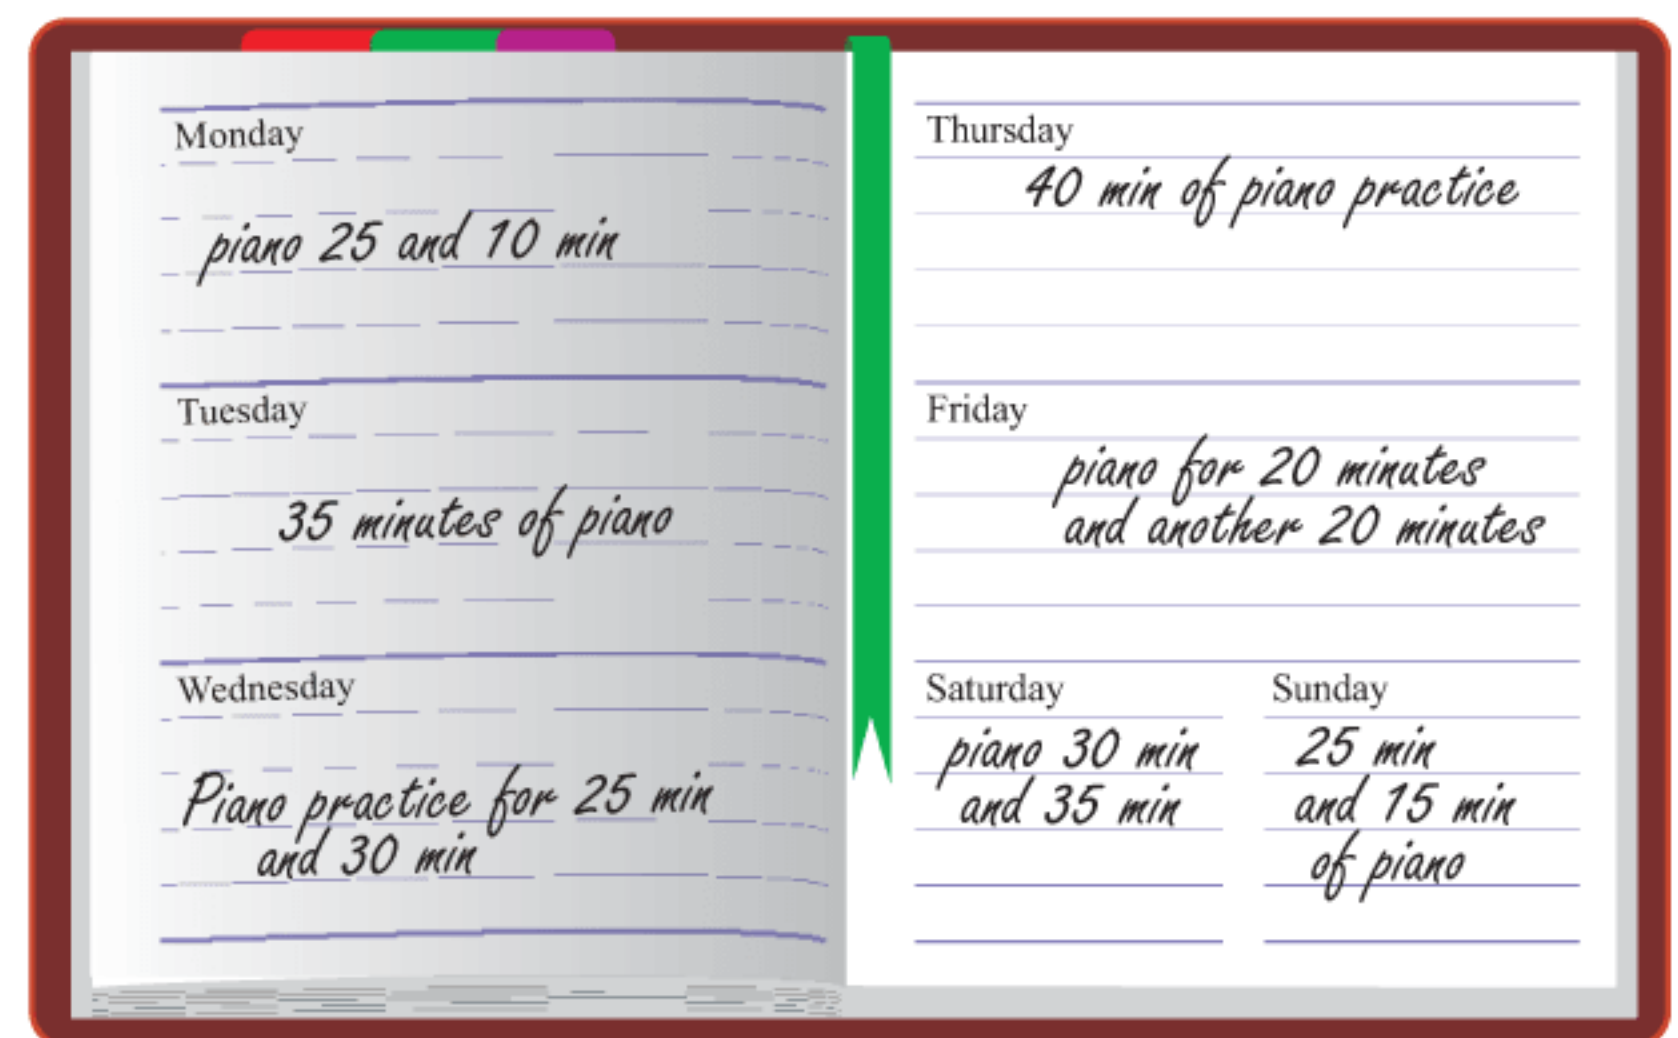 Monday
piano 25 and 10 min
Tuesday
35 minutes of piano
Wednesday
Piano practice for 25 min
and 30 min
Thursday
40 min of piano practice
Friday
piano for 20 minutes
and another 20 minutes
Saturday
piano 30 min
and 35 min
Sunday
25 min
and 15 min
of piano